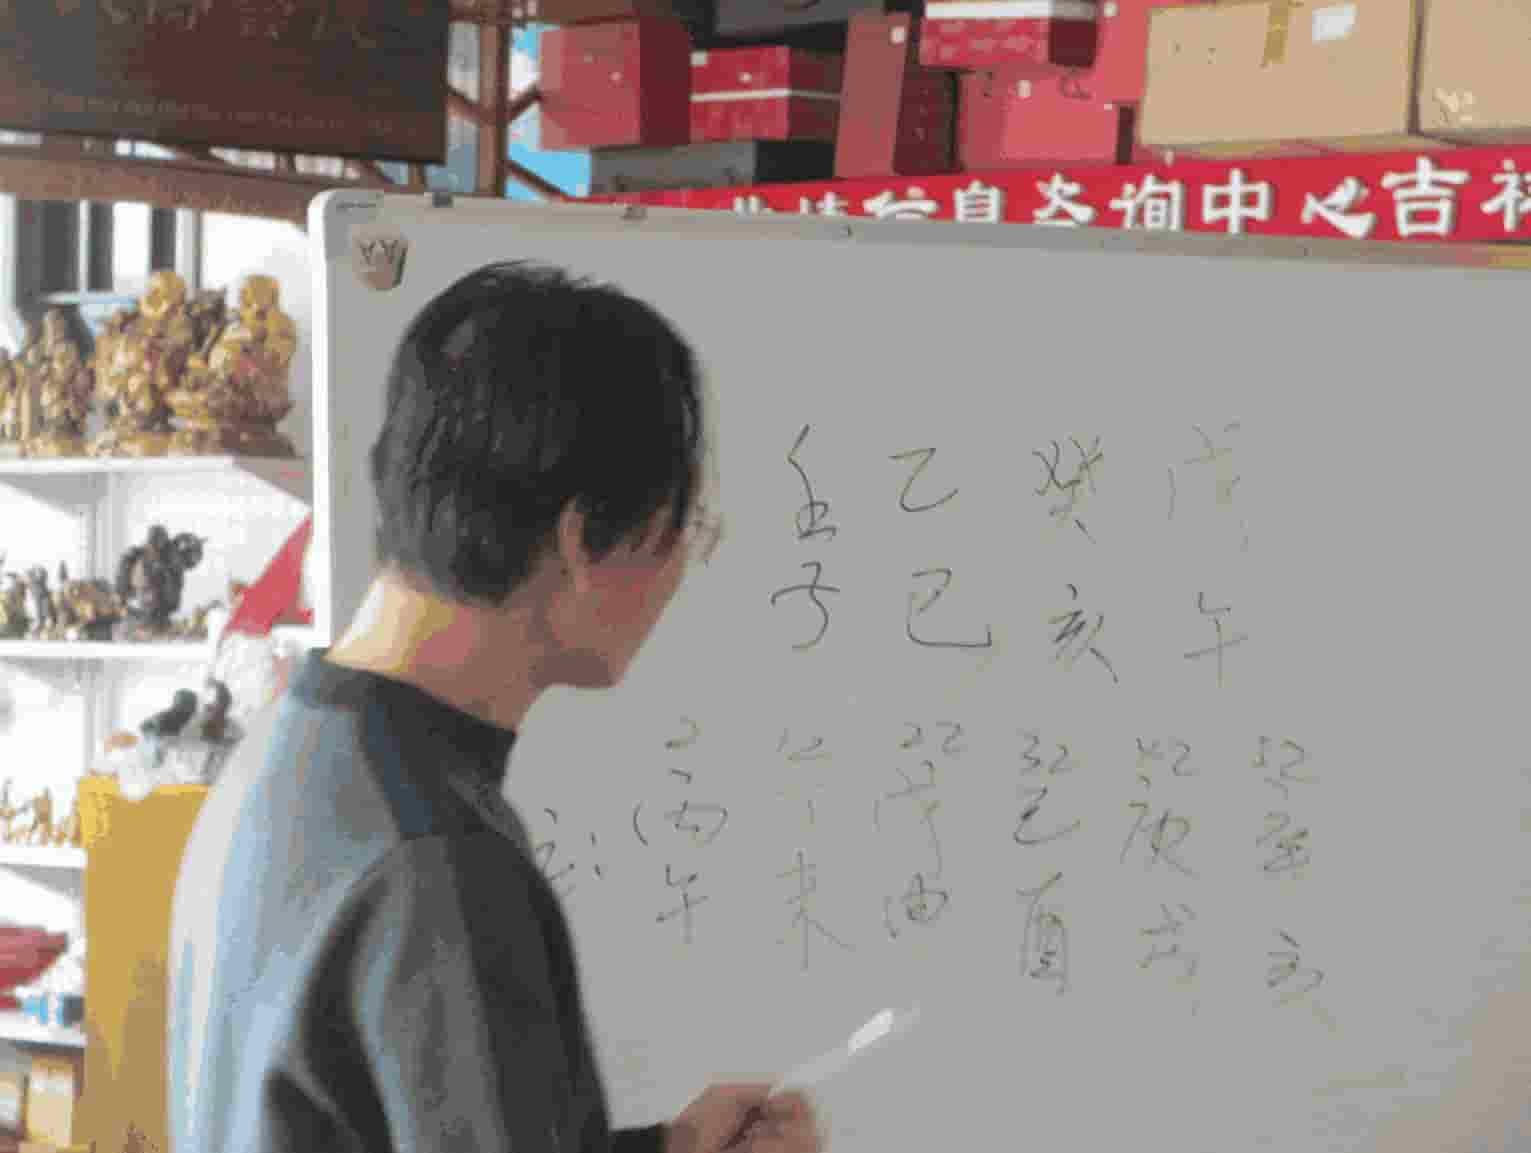 信息咨询中心吉祥
壬 乙 癸 戊
子 巳 亥 午
2 12 22 32 42 52
丙 丁 戊 己 庚 辛
午 未 申 酉 戌 亥